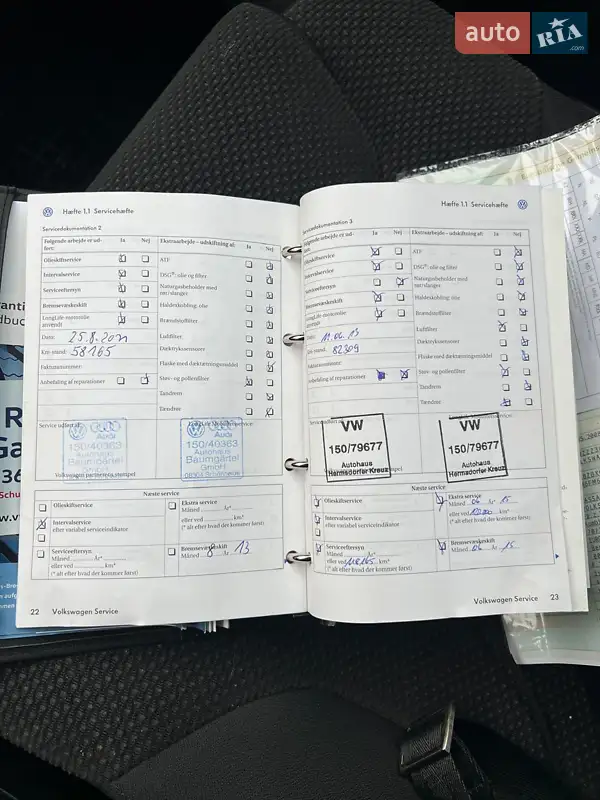 auto RIA .com
Hæfte 1.1 Servicehæfte
Servicedokumentation 2
Følgende arbejde er ud-
ført: Ja Nej
Ekstraarbejde – udskiftning af: Ja Nej
Olieskiftservice
ATF
Intervalservice
DSG®: olie og filter
Serviceeftersyn
Naturgasbeholder med
rør/slanger
Bremsevæskeskift
Haldexkobling: olie
LongLife-motorolie
anvendt
Brændstoffilter
Dato: 25.8.2011
Luftfilter
Km-stand: 58165
Dæktryksensorer
Fakturanummer:
Flaske med dæktætningsmiddel
Anbefaling af reparationer
Støv- og pollenfilter
Tandrem
Tændrør
Service udført af:
Audi
150/40363
Autohaus
Baumgärtel
GmbH
Audi
150/40363
Autohaus
Baumgärtel
GmbH
Volkswagen partnerens stempel
Næste service
Olieskiftservice
Ekstra service
Måned År*
eller ved km*
(* alt efter hvad der kommer først)
Intervalservice
efter variabel serviceindikator
Serviceeftersyn:
Måned År*
eller ved km*
(* alt efter hvad der kommer først)
Bremsevæskeskift
Måned 8 År 13
22 Volkswagen Service
Hæfte 1.1 Servicehæfte
Servicedokumentation 3
Følgende arbejde er ud-
ført: Ja Nej
Ekstraarbejde – udskiftning af: Ja Nej
Olieskiftservice
ATF
Intervalservice
DSG®: olie og filter
Serviceeftersyn
Naturgasbeholder med
rør/slanger
Bremsevæskeskift
Haldexkobling: olie
LongLife-motorolie
anvendt
Brændstoffilter
Dato: 11.06.13
Luftfilter
Km-stand: 82309
Dæktryksensorer
Fakturanummer:
Flaske med dæktætningsmiddel
Anbefaling af reparationer
Støv- og pollenfilter
Tandrem
Tændrør
Service udført af:
VW
150/79677
Autohaus
Hermsdorfer Kreuz
VW
150/79677
Autohaus
Hermsdorfer Kreuz
Næste service
Olieskiftservice
Ekstra service
Måned 06 År 15
eller ved km*
(* alt efter hvad der kommer først)
Intervalservice
efter variabel serviceindikator
Serviceeftersyn:
Måned År*
eller ved km*
(* alt efter hvad der kommer først)
Bremsevæskeskift
Måned 06 År 15
Volkswagen Service 23